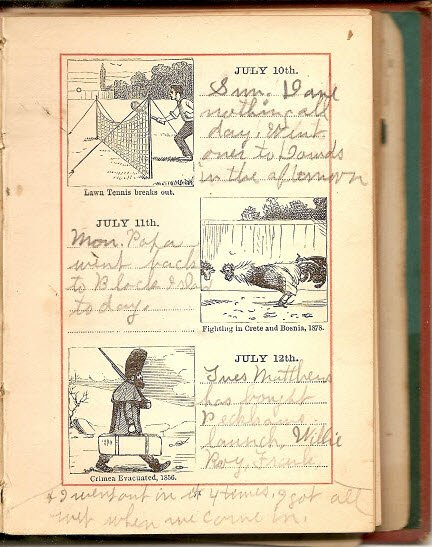 JULY 10th.
Sun. Done
nothing all
day. Went
over to Dowds
in the afternoon
Lawn Tennis breaks out.
JULY 11th.
Mon. Papa
went back
to Block Is
today.
Fighting in Crete and Bosnia, 1878.
JULY 12th.
Tues Matthews
has bought
launch, Willie
Roy, Frank
Crimea Evacuated, 1856.
& I went out in it 4 times. I got all
wet when we come in.